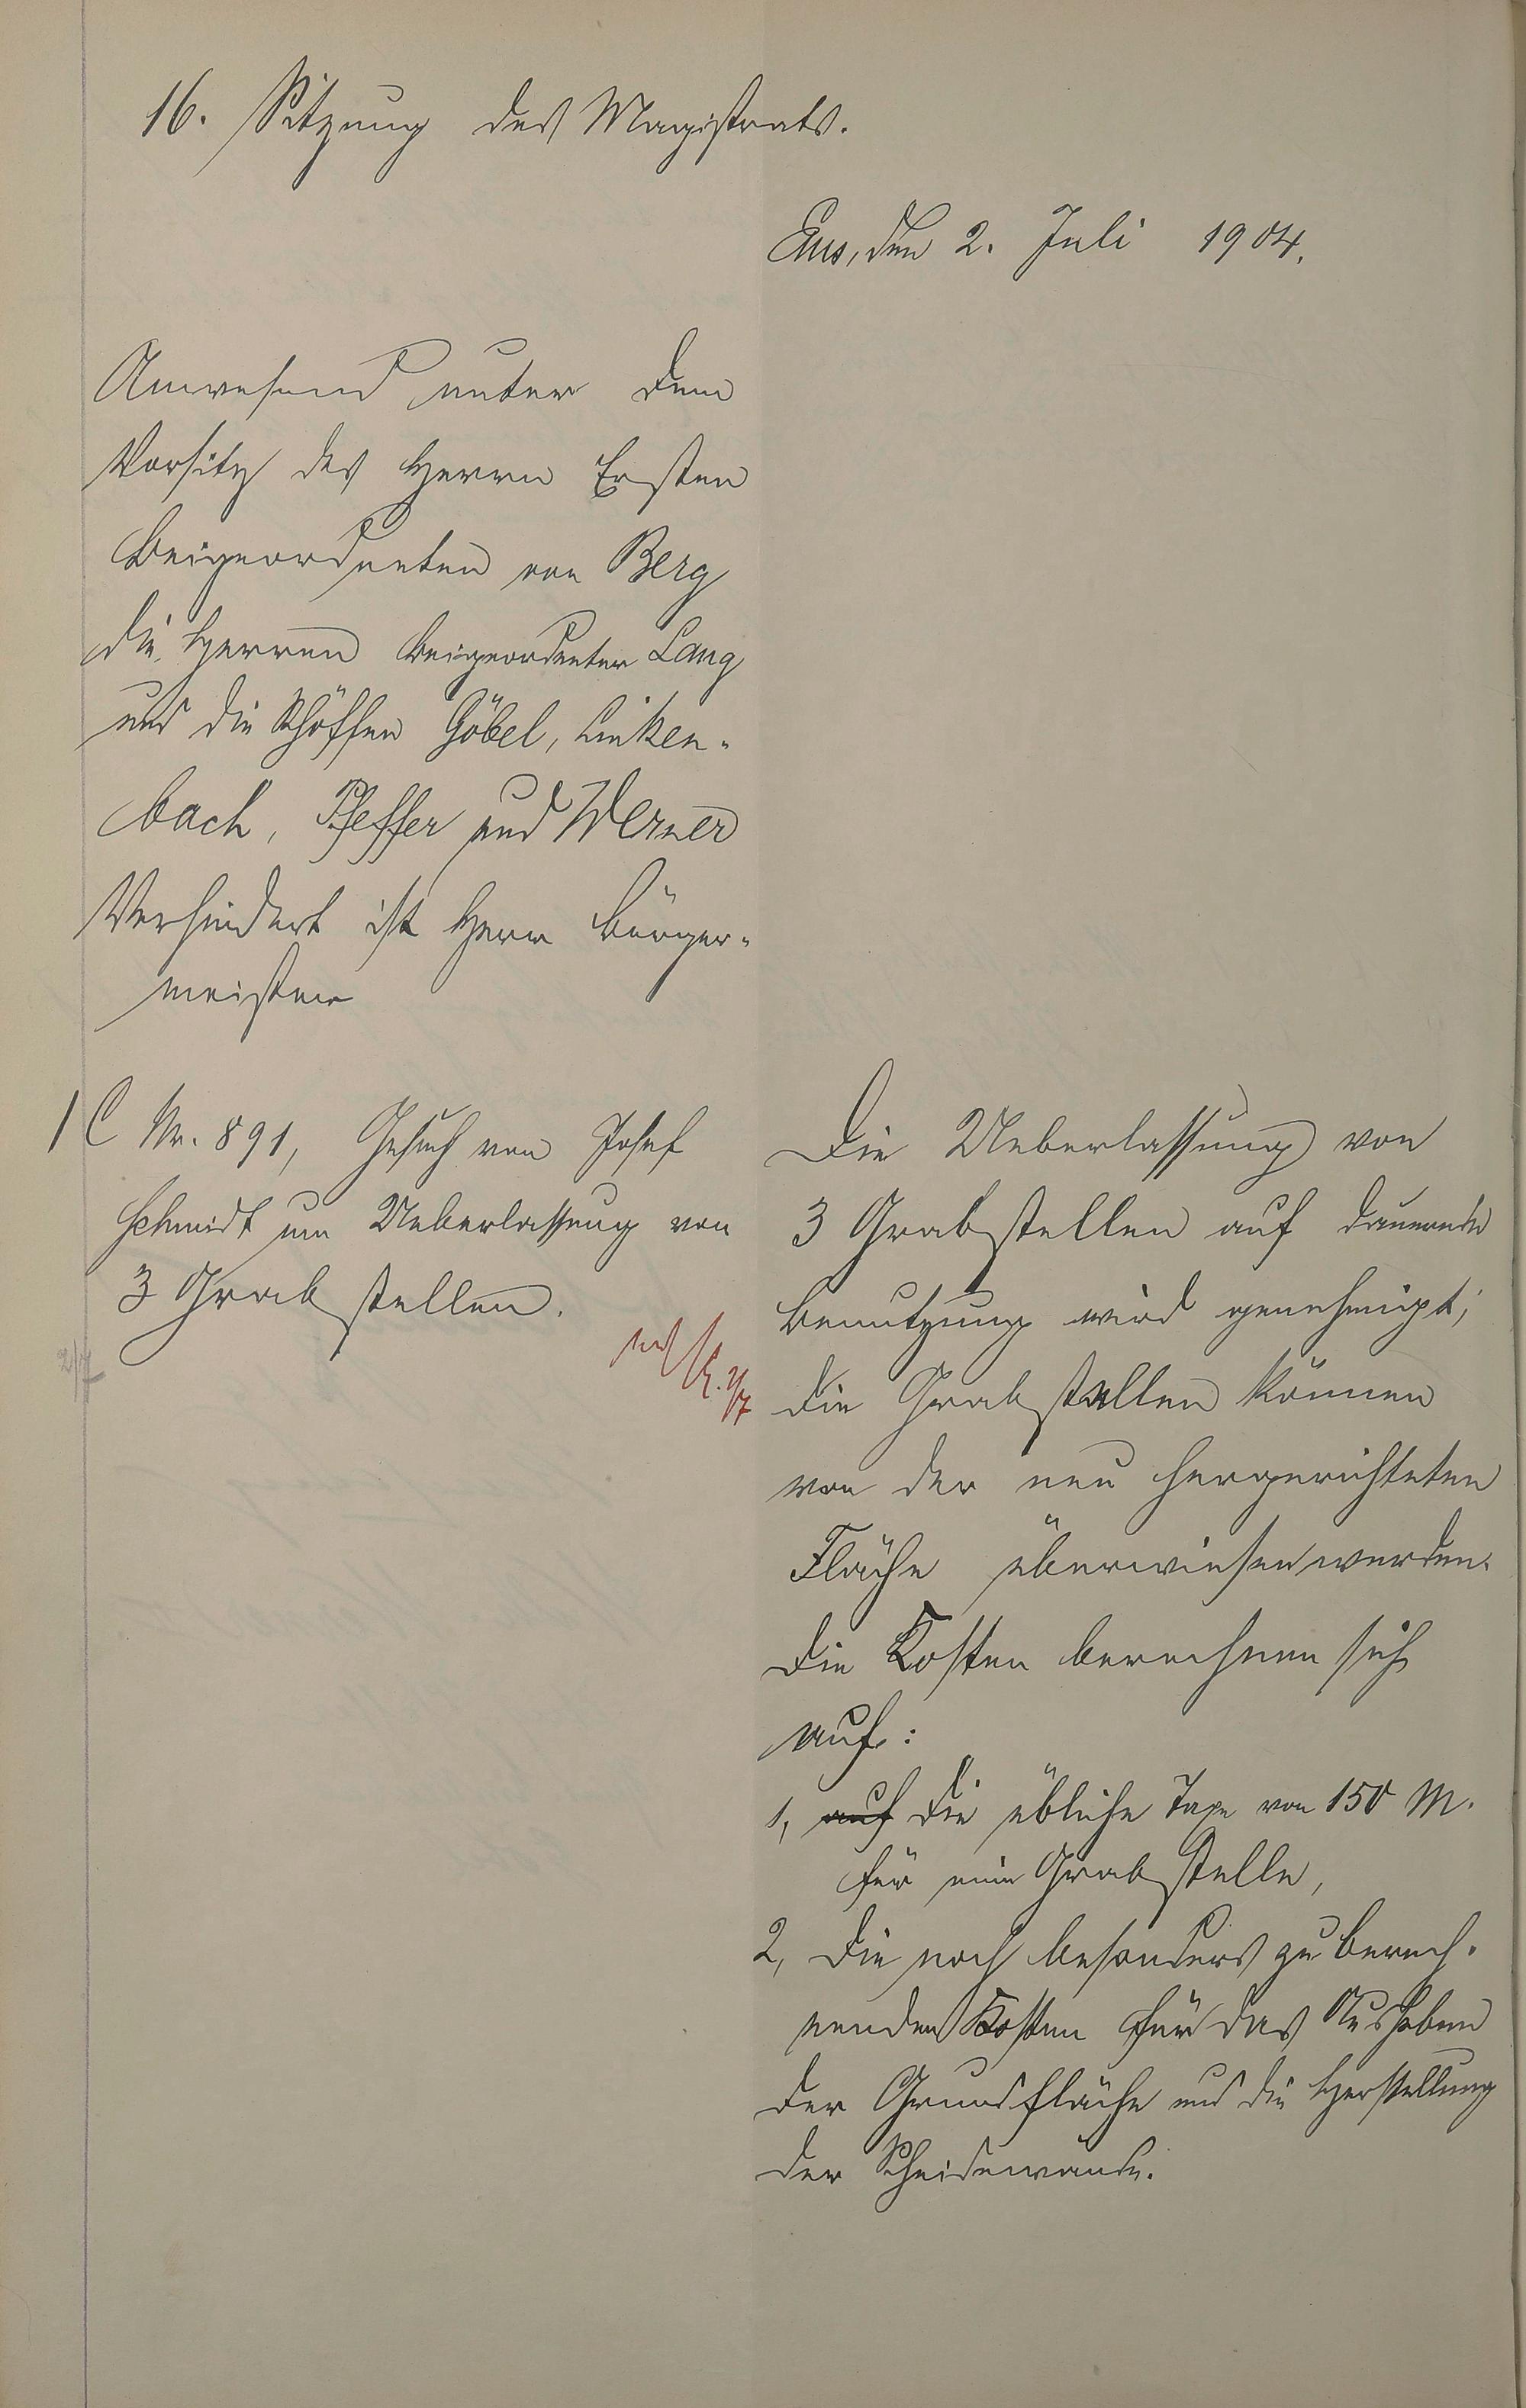 16. Sitzung des Magistrats.
Ems, den 2. Juli 1904.
Anwesend unter dem
Vorsitz des Herrn Ersten
Beigeordneten von Berg
die Herren Beigeordneter Lang
und die Schöffen Göbel, Linken-
bach, Pfeffer und Werner
Verhindert ist Herr Bürger-
meister
1 C Nr. 891, Gesuch von Josef
Schmidt um Ueberlassung von
3 Grabstellen.
2/7
2/7
Die Ueberlassung von
3 Grabstellen auf dauernde
Benutzung wird genehmigt;
die Grabstellen können
von der neu hergerichteten
Fläche überwiesen werden.
Die Kosten berechnen sich
auf:
1, auf die übliche Taxe von 150 M.
für eine Grabstelle,
2, die noch besonders zu berech-
nenden Kosten für das Ausheben
der Grundfläche und die Herstellung
der Scheidewände.